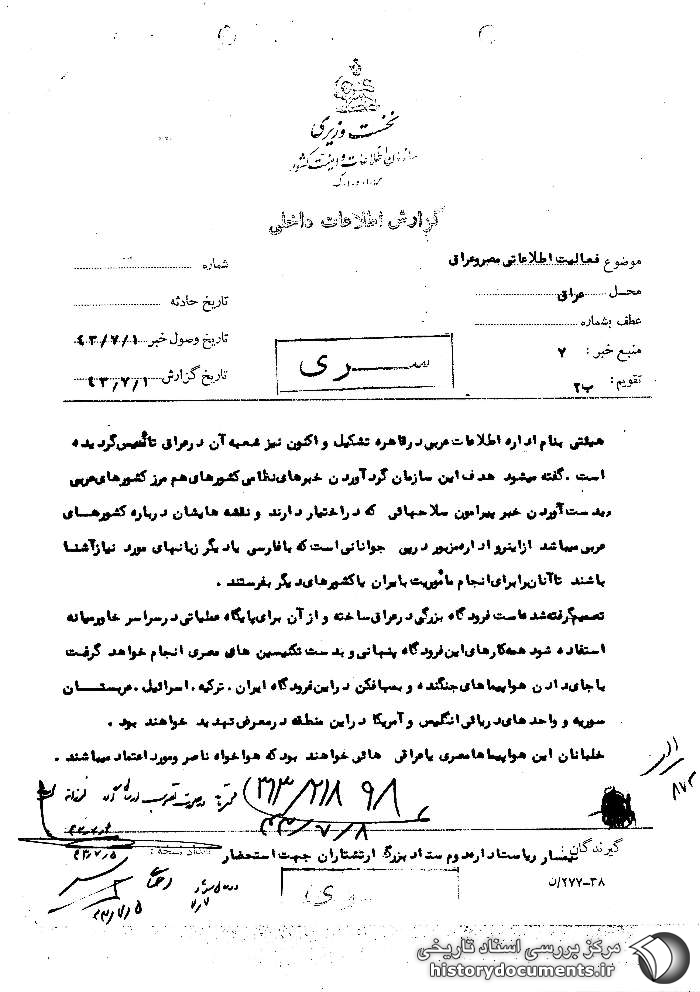 نخست وزیری
سازمان اطلاعات و امنیت کشور
س.ا.و.ا.ک
گزارش اطلاعات داخلی
موضوع فعالیت اطلاعاتی مصر و عراق
محل عراق
عطف بشماره
منبع خبر : ۷
تقویم : ب۲
شماره
تاریخ حادثه
تاریخ وصول خبر ۴۳/۷/۱
تاریخ گزارش ۴۳/۷/۱
سری
هیئتی بنام اداره اطلاعات عربی در قاهره تشکیل و اکنون نیز شعبه آن در عراق تأسیس گردیده
است . گفته میشود هدف این سازمان گرد آوردن خبرهای نظامی کشورهای هم مرز کشورهای عربی
وبدست آوردن خبر پیرامون سلاحهائی که در اختیار دارند و نقشه هایشان درباره کشورهای
عربی میباشد از اینرو اداره مزبور در پی جوانانی است که با فارسی یا دیگر زبانهای مورد نیاز آشنا
باشند تا آنان را برای انجام مأموریت بایران یا کشورهای دیگر بفرستند .
تصمیم گرفته شده است فرودگاه بزرگی در عراق ساخته و از آن برای پایگاه عملیاتی در سراسر خاورمیانه
استفاده شود همه کارهای این فرودگاه پنهانی و بدست تکنیسین های مصری انجام خواهد گرفت
با جای دادن هواپیماهای جنگنده و بمب افکن در این فرودگاه ایران ، ترکیه ، اسرائیل ، عربستان
سوریه و واحدهای دریائی انگلیس و آمریکا در این منطقه در معرض تهدید خواهند بود .
خلبانان این هواپیماها مصری یا عراقی هائی خواهند بود که هواخواه ناصر و مورد اعتماد میباشند .
الف
۸۷۲
۹۸
۴۳/۷/۸
گیرندگان : تیمسار ریاست اداره دوم ستاد بزرگ ارتشتاران جهت استحضار
تعداد نسخه :
۳۸-۲۷۷/ن
۴۳/۷/۵
۷/۷
۴۳/۷/۵
سری
مرکز بررسی اسناد تاریخی
historydocuments.ir